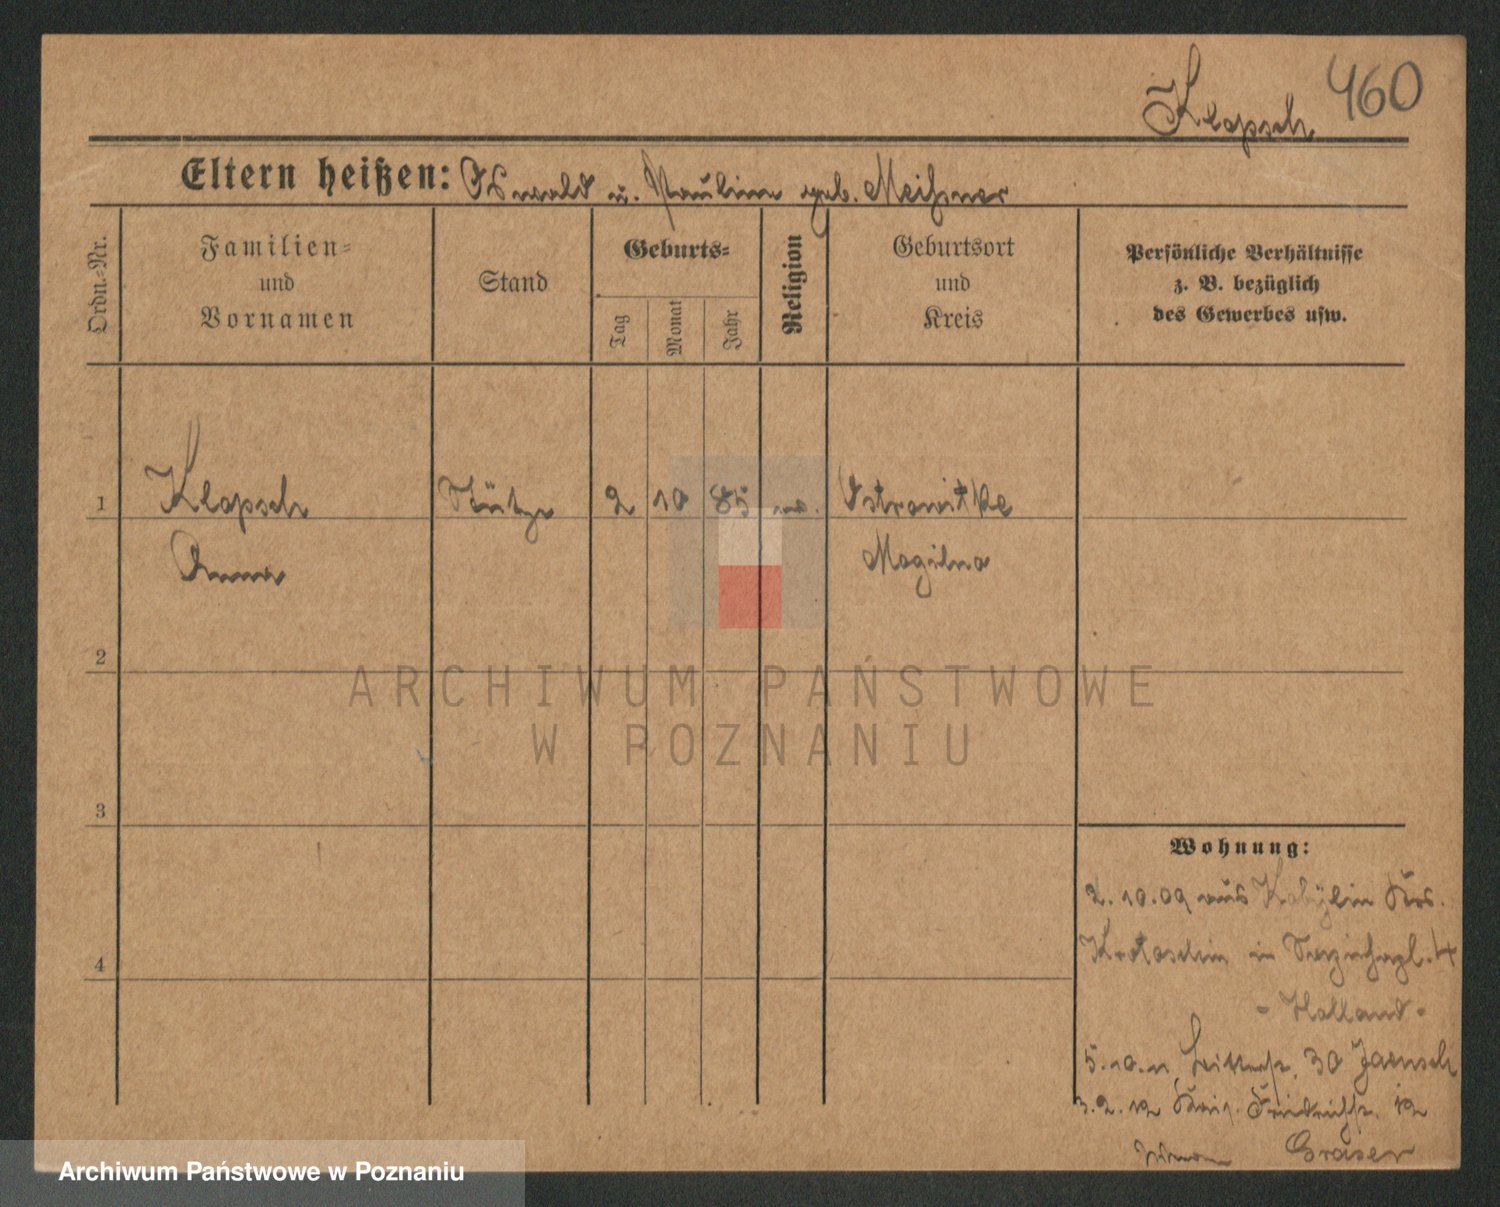 Klapsch 460
Eltern heißen: Oswald u. Pauline geb. Meißner
Ordn.-Nr.
Familien-
und
Vornamen
Stand
Geburts-
Tag
Monat
Jahr
Religion
Geburtsort
und
Kreis
Persönliche Verhältnisse
z. B. bezüglich
des Gewerbes usw.
1 Klapsch Stütze 2 10 85 ev. Ostrowitke
Anna Mogilno
2
3
4
Wohnung:
2. 10. 09 aus Kobylin Krs.
Krotoschin in 4
- Holland -
5. 10. 11 30 Jaensch
3. 2. 12 Kais. Friedrichstr. 12
Gräser
ARCHIWUM PAŃSTWOWE
W POZNANIU
Archiwum Państwowe w Poznaniu